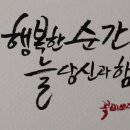 행복한 순간
늘 당신과 함